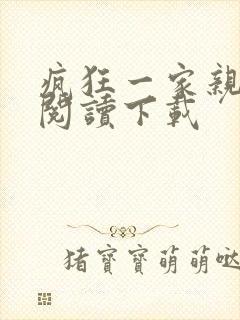 瘋狂一家親
閱讀下載
猪寶寶萌萌噠